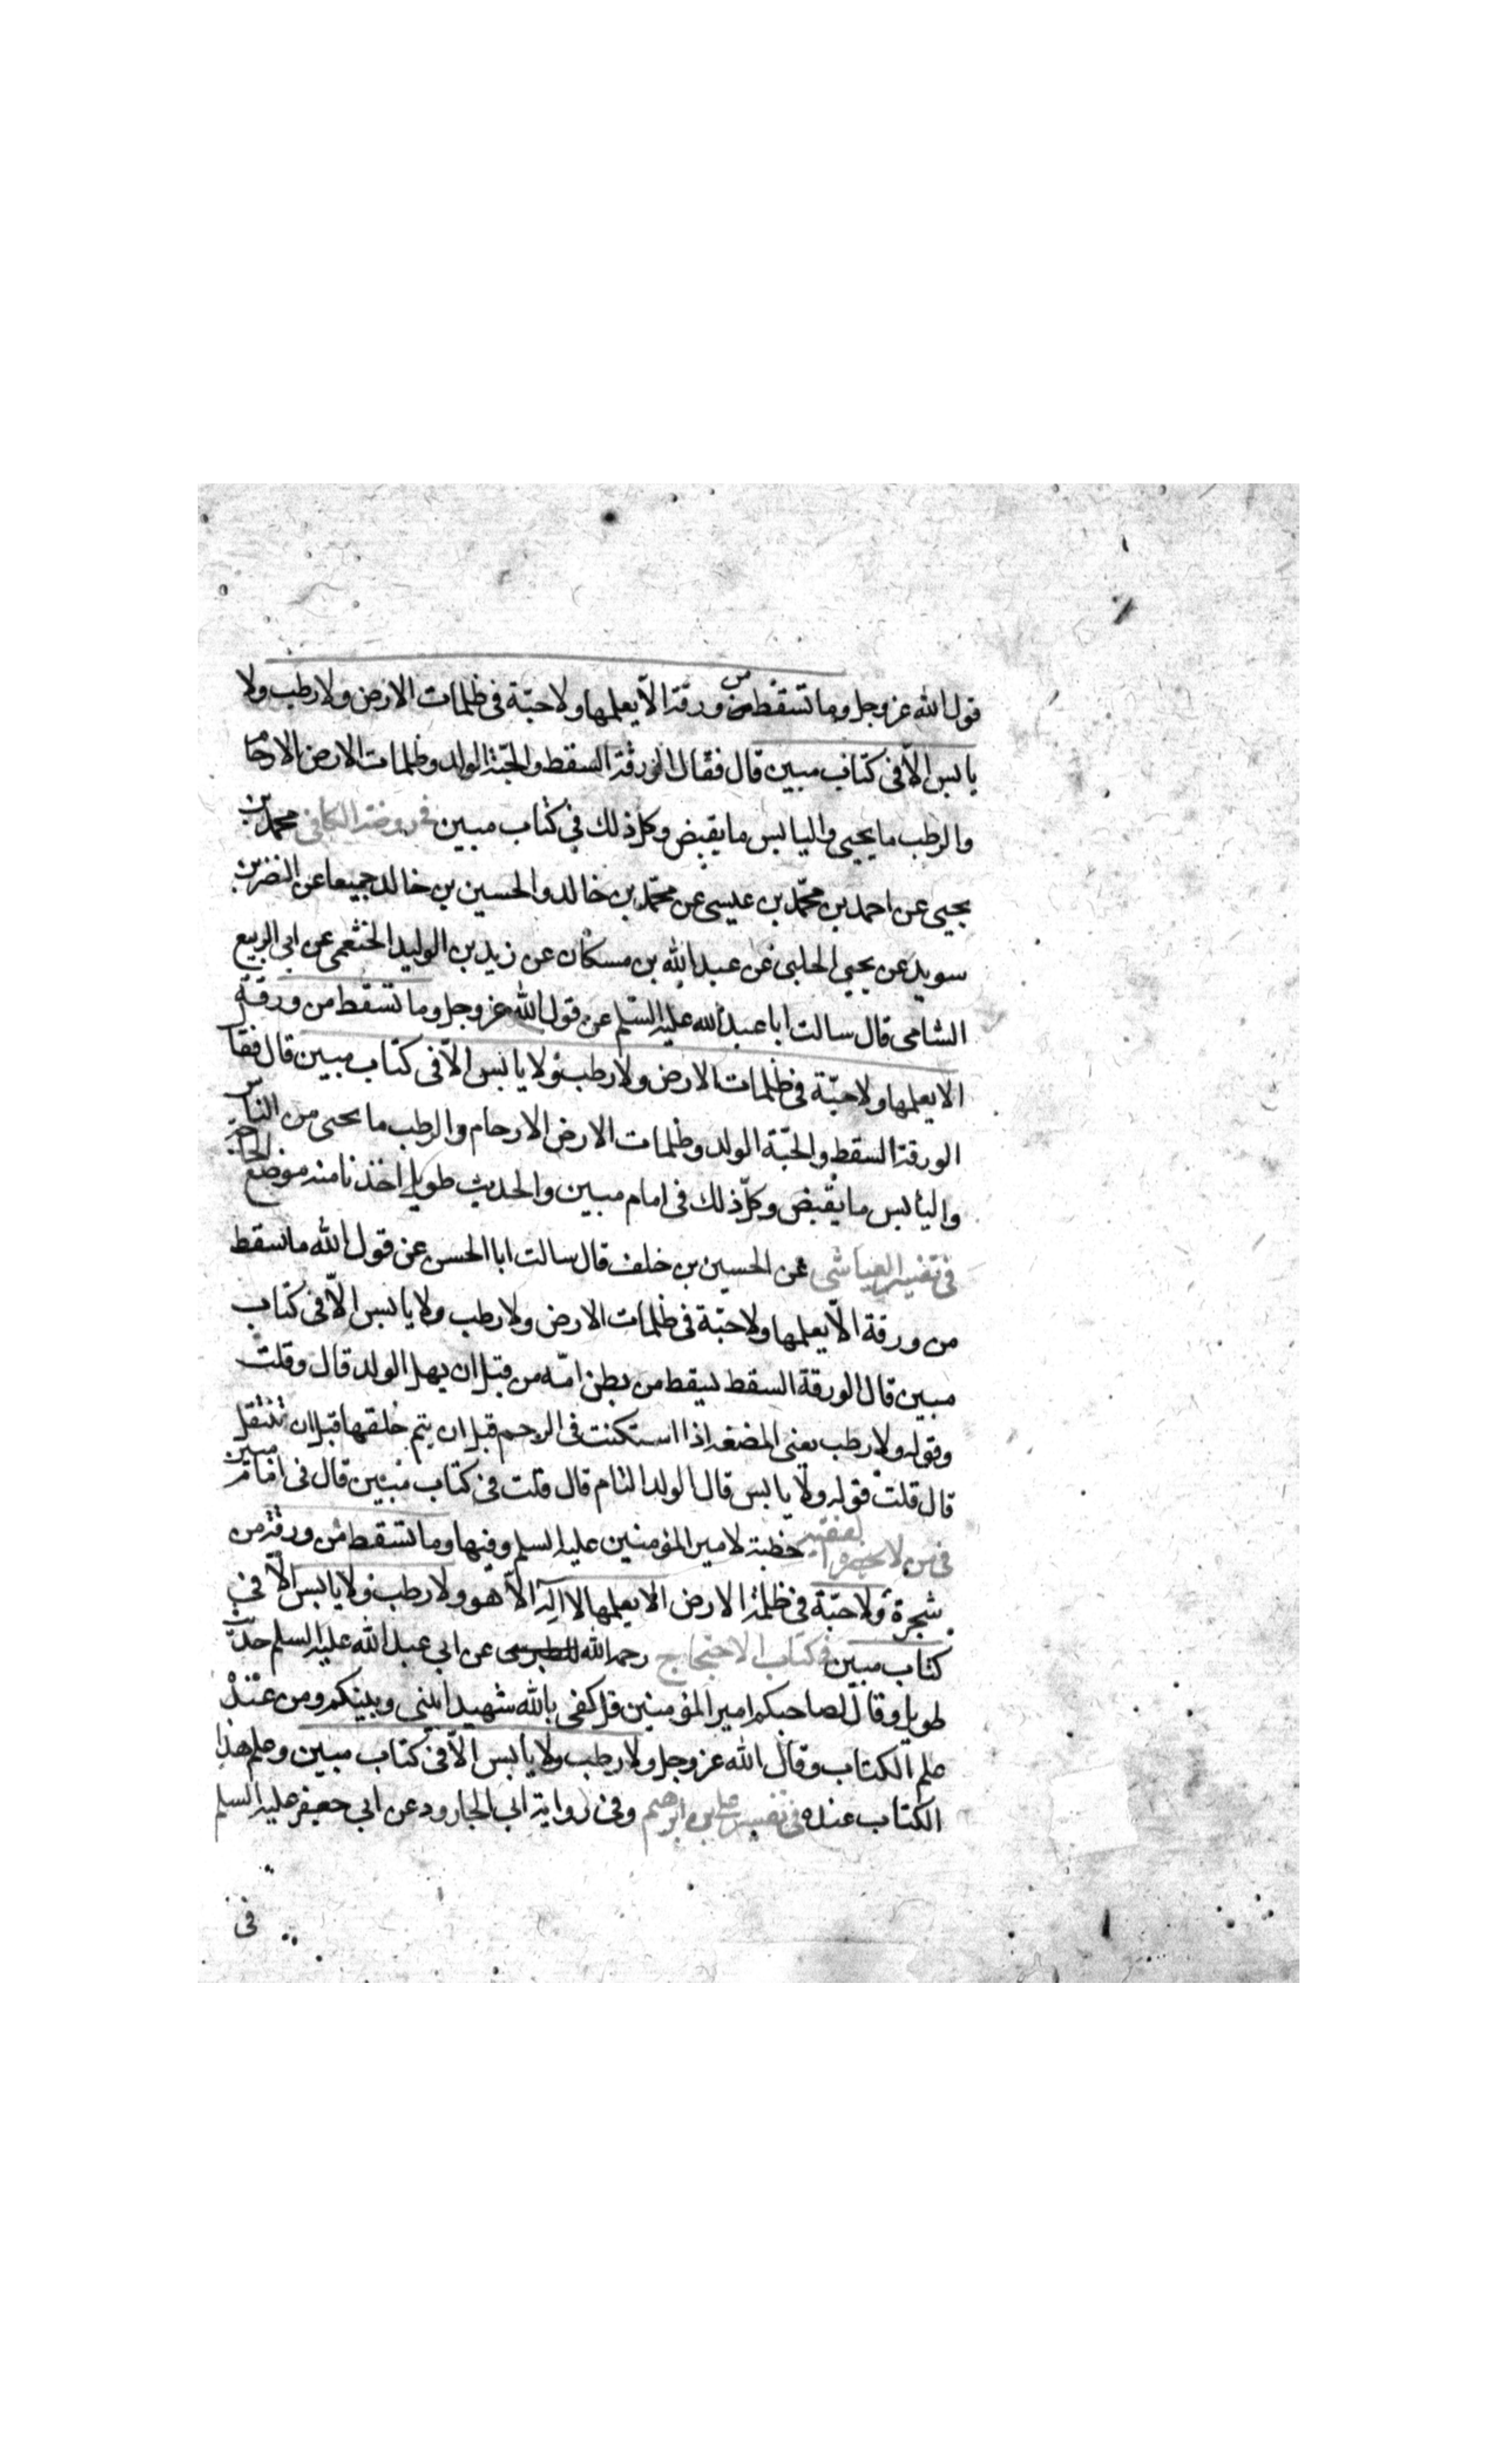 قول الله عز وجل وما تسقط من ورقة الّا يعلمها ولا حبّة فى ظلمات الارض ولا رطب ولا
يابس الّا فى كتاب مبين قال فقال الورقة السقط والحبّة الولد وظلمات الارض الارحام
والرطب ما يحيى واليابس ما يقبض وكل ذلك فى كتاب مبين فى روضة الكافى محمد بن
يحيى عن احمد بن محمّد بن عيسى عن محمّد بن خالد والحسين بن خالد جميعا عن النضر بن
سويد عن يحيى الحلبى عن عبد الله بن مسكان عن زيد بن الوليد الخثعمى عن ابى الربيع
الشامى قال سالت ابا عبد الله عليه السّلم عن قول الله عز وجل وما تسقط من ورقة
الا يعلمها ولا حبّة فى ظلمات الارض ولا رطب ولا يابس الّا فى كتاب مبين قال فقا
الورقة السقط والحبّة الولد وظلمات الارض الارحام والرطب ما يحيى من الناس
واليابس ما يقبض وكلّ ذلك فى امام مبين والحديث طويل اخذنا منه موضع الحاجة
فى تفسير العياشى عن الحسين بن خلف قال سالت ابا الحسن عن قول الله ما تسقط
من ورقة الّا يعلمها ولا حبّة فى ظلمات الارض ولا رطب ولا يابس الّا فى كتاب
مبين قال الورقة السقط يسقط من بطن امّه من قبل ان يهل الولد قال وقلت
وقوله ولا رطب يعنى المضغه اذا استكنت فى الرحم قبل ان يتم خلقها قبل ان تنتقل
قال قلت قوله ولا يابس قال الولد التام قال قلت فى كتاب مبين قال فى امام مبين
فى من لا يحضره الفقيه خطبة لامير المؤمنين عليه السلم وفيها وما تسقط من ورقة من
شجرة ولا حبّة فى ظلمة الارض الا يعلمها لا اله الّا هو ولا رطب ولا يابس الّا فى
كتاب مبين فى كتاب الاحتجاج للطبرسى رحمه الله عن ابى عبد الله عليه السلم حديث
طويل وقال لصاحبكم امير المؤمنين قل كفى بالله شهيدا بينى وبينكم ومن عنده
علم الكتاب وقال الله عز وجل ولا رطب ولا يابس الّا فى كتاب مبين وعلم هذا
الكتاب عنده فى تفسير على بن ابرهيم وفى رواية ابى الجارود عن ابى جعفر عليه السلم
فى